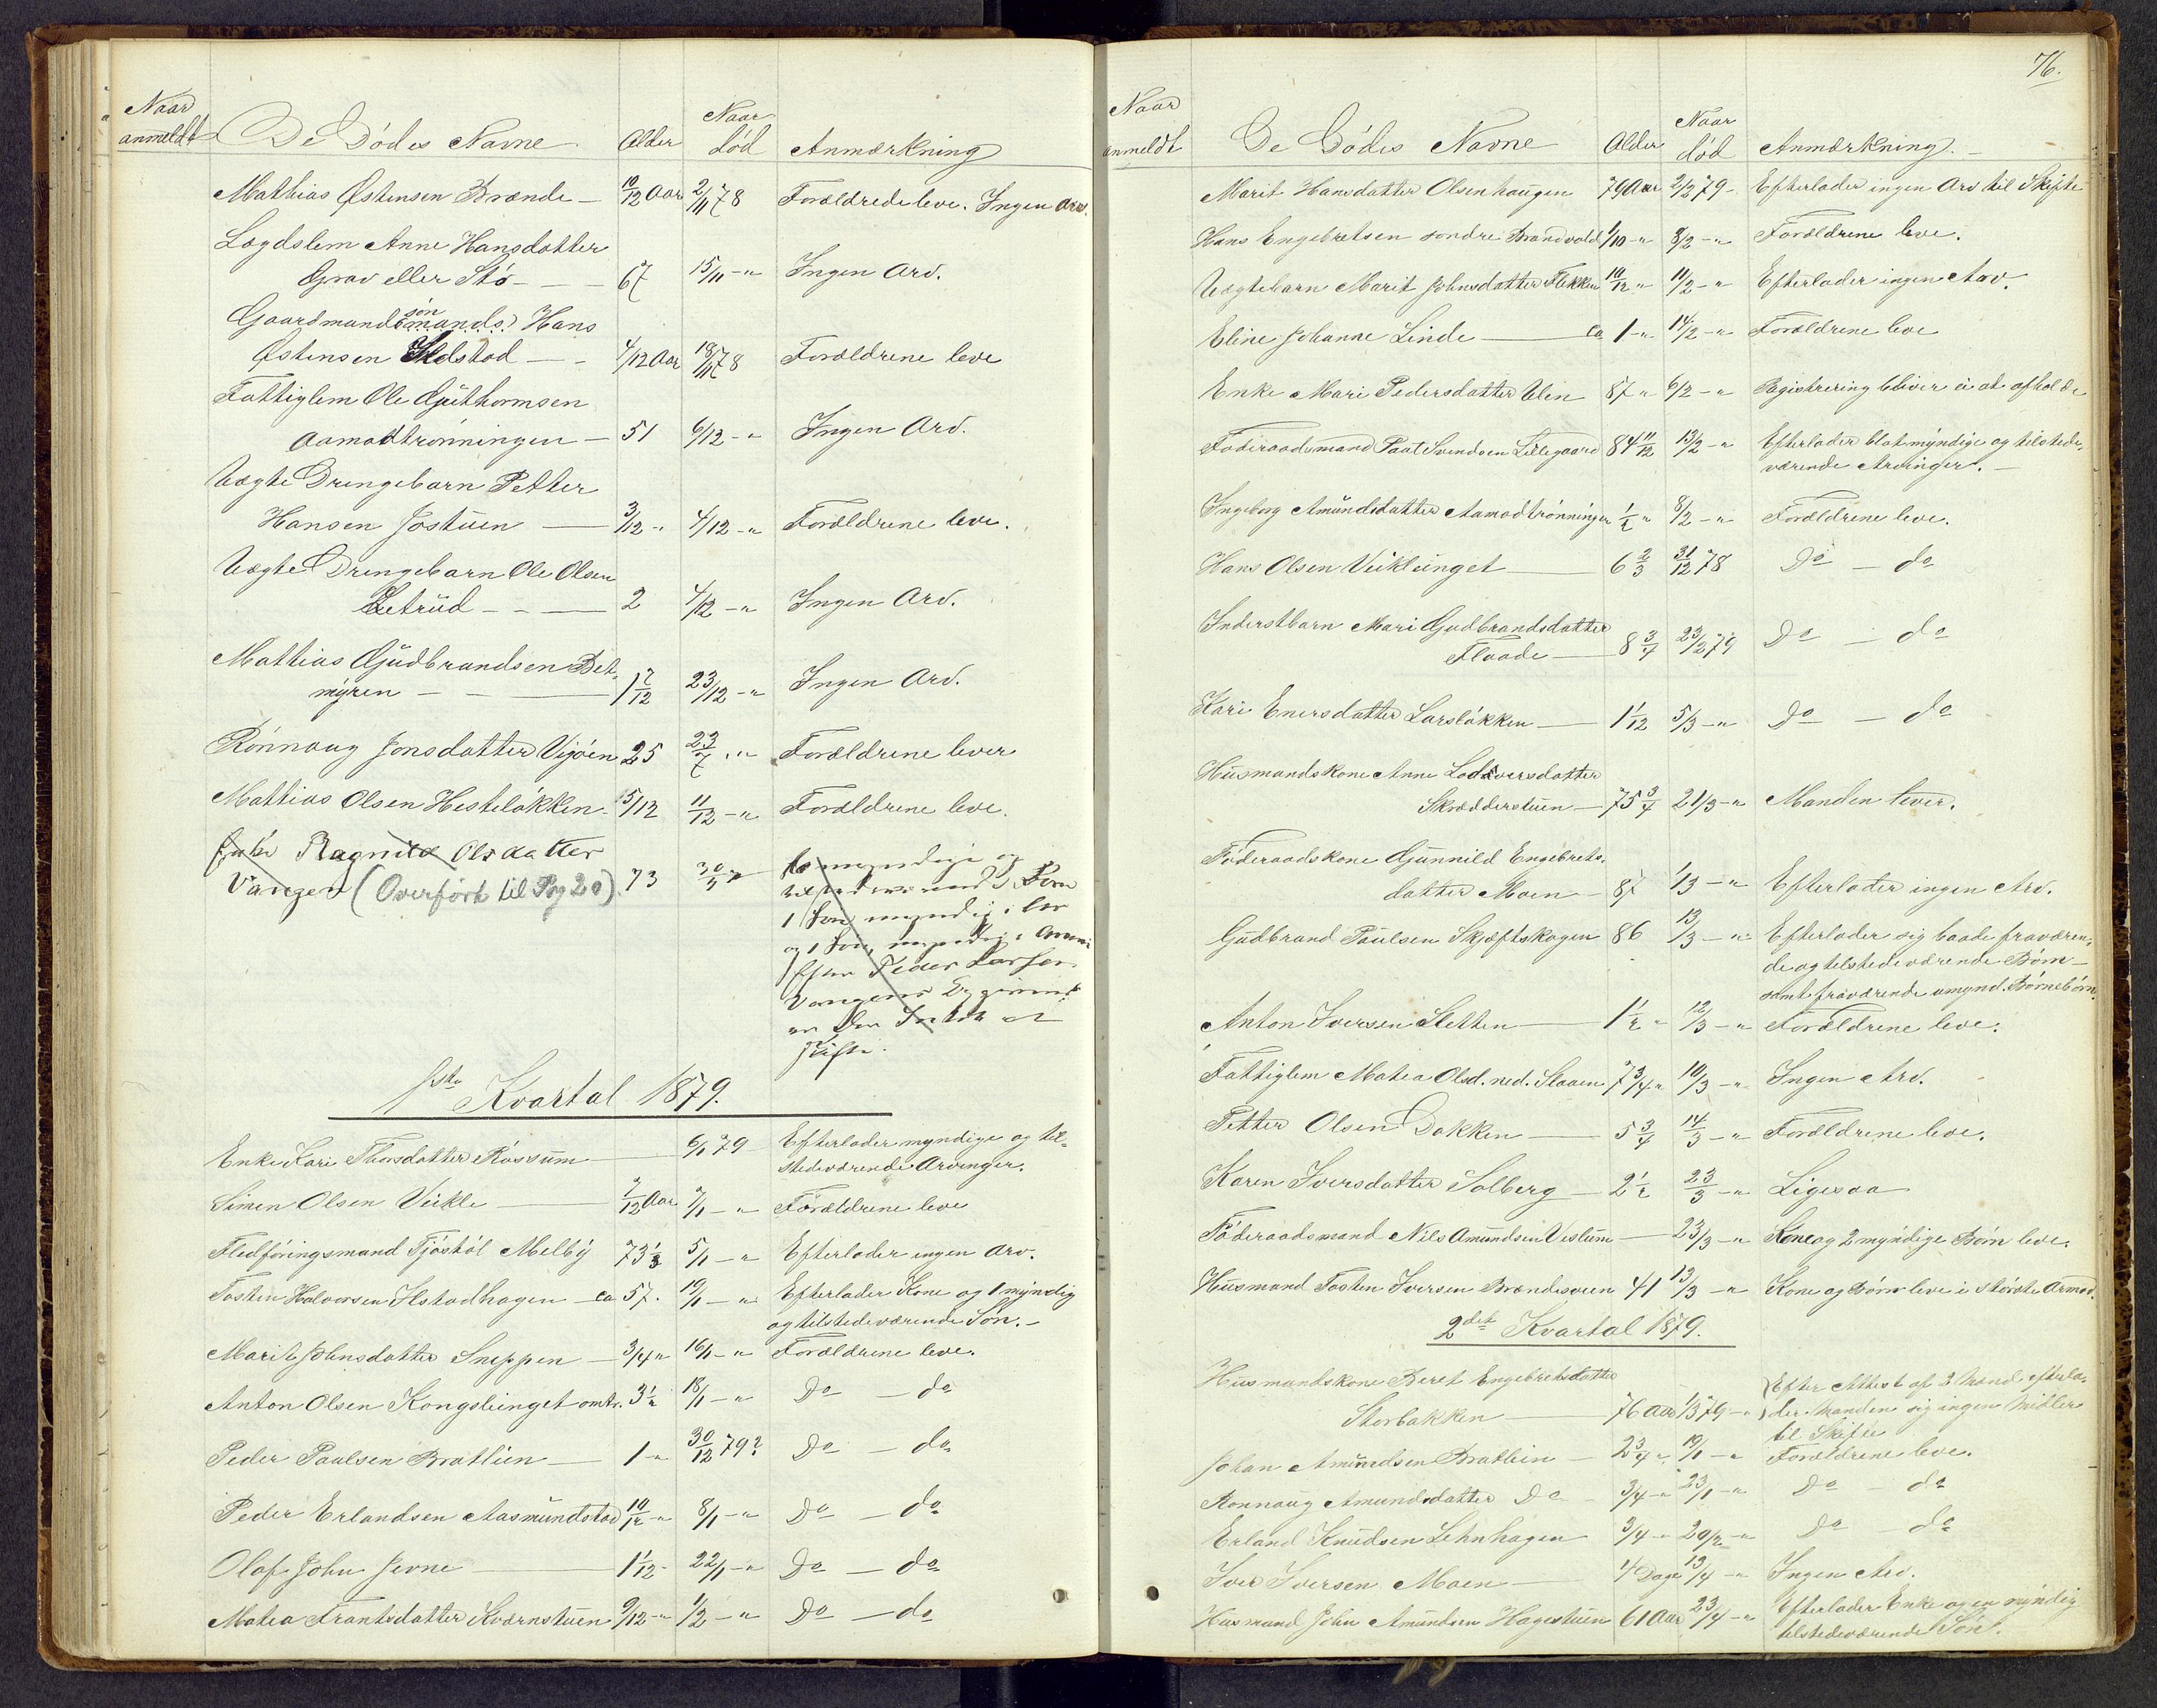 Naar
anmeldt
De Dødes Navne
Alder
Naar
død
Anmærkning
Mathias Østensen Brænde — 10/12 Aar 2/11 78 Forældrede leve. Ingen Arv.
Lægdslem Anne Hansdatter
Grav eller Stø - — - 67 15/11 - " Ingen Arv.
søn
Gaardmands mands? Hans
Østensen Ildstad — - 4/12 Aar 18/11 78 Forældrene leve
Fattiglem Ole Guthormsen
Aamodtrønningen — 51 6/12 - " Ingen Arv.
Uægte Drengebarn Petter
Hansen Jostuen — 3/12 " 4/12 - " Forældrene leve.
Uægte Drengebarn Ole Olsen
Letrud - - — 2 4/12 - " Ingen Arv.
Mathias Gudbrandsen Bet-
myren - — 1 7/12 23/12 - " Ingen Arv.
Rønnaug Jonsdatter Vigøien 25 23/7 " " Forældrene lever
Mathias Olsen Hesteløkken - 5/12 11/12 - " Forældrene leve.
Enke Ragnild Olsdatter
Vangen (Overført til Pag 20) 73 30/
myndige og
Børn
1 Søn myndig i
og 1 Søn, myndig i
Efter Peder Larsen
Vangens
1ste Kvartal 1879.
Enke Kari Thorsdatter Røssum — 6/1 79 Efterlader myndige og til-
stedeværende Arvinger.
Simen Olsen Vikle — 7/12 Aar 7/1 - " Forældrene leve
Fledføringsmand Tjøstøl Melby 73 1/3 5/1 - " Efterlader ingen Arv.
Tosten Halvorsen Ilstadhagen — ca 57. 19/1 - " Efterlader Kone og 1 myndig
og tilstedeværende Søn. -
Marit Johnsdatter Sneppen — 3/4 " 16/1 - " Forældrene leve.
Anton Olsen Kongslinget omtr. 3 1/2 18/1 - " Do — do
Peder Paulsen Bratlien — 1 - " 30/12 79? Do — do
Peder Erlandsen Aasmundstad 10/12 - " 8/1 - " Do — do
Olaf John Jevne — 1 1/12 - 22/1 - " Do — do
Mathea Frantsdatter Kværnstuen 9/12 - " 1/2 - " Do — do
76.
Naar
anmeldt
De Dødes Navne
Alder
Naar
død
Anmærkning. -
Marit Hansdatter Olsenhaugen 79 Aar 2/2 79 - Efterlader ingen Arv til Skifte
Hans Engebretsen søndre Brandvold 9/10 - " 8/2 - " Forældrene leve.
Uægtebarn Marit Johnsdatter Flekken 10/12 " 11/2 - " Efterlader ingen Arv.
Eline Johanne Linde — ca 1 - " 14/2 - " Forældrene leve
Enke Mari Pedersdatter Ulen 87 " 6/2 - " Registrering bliver ei at afholde
Føderaadsmand Paul Svendsen Lillegaard 84 11/12 13/2 - " Efterlader blot myndige og tilstede-
værende Arvinger. -
Ingeborg Amundsdatter Aamodtrønningen 1/2 " 8/2 - " Forældrene leve.
Hans Olsen Veiklinget — 6 2/3 31/12 78 Do — do
Inderstbarn Mari Gudbrandsdatter
Flaade — 8 3/4 23/2 79 Do — do
Kari Enersdatter Larsløkken — 1 1/12 5/3 - " Do — do
Husmandskone Anne Lodsversdatter
Skrædderstuen — 75 3/4 21/3 - " Manden lever.
Føderaadskone Gunnild Engebrets-
datter Moen — 87 1/3 - " Efterlader ingen Arv.
Gudbrand Paulsen Skjæftskogen 86 13/3 - " Efterlader sig baade fraværen-
de og tilstedeværende Børn -
samt fraværende umynd. Børnebørn.
Anton Iversen Sletten — 1 1/2 - 12/3 - " Forældrene leve.
Fattiglem Mathea Olsd. ned. Slaaen 73/4 " 10/3 - " Ingen Arv.
Petter Olsen Dokken — 5 3/4 14/3 - " Forældrene leve.
Karen Iversdatter Solberg — 2 1/2 23/3 - " Ligesaa
Føderaadsmand Nils Amundsen Veslum — 23/3 - " Kone og 2 myndige Børn leve.
Husmand Tosten Iversen Brændsveen 41 13/3 - " Kone og Børn leve i største Armod.
2det Kvartal 1879.
Husmandskone Beret Engebretsdatter
Storbakken — 76 Aar 1/3 79 - Efter Attest af 2 Mænd efterla-
der Manden sig ingen Midler
til Skifte
Johan Amundsen Bratlien — 2 3/4 " 19/1 - " Forældrene leve.
Rønnaug Amundsdatter Do - 3/4 - " 23/1 - " Do — do
Erland Knudsen Lehnhagen 3/4 - 20/2 - " Do do
Iver Iversen Moen — 4 Dage 13/4 - " Ingen Arv.
Husmand John Amundsen Hagestuen 61 Aar 23/4 - " Efterlader Enke og en myndig
tilstedeværende Søn.